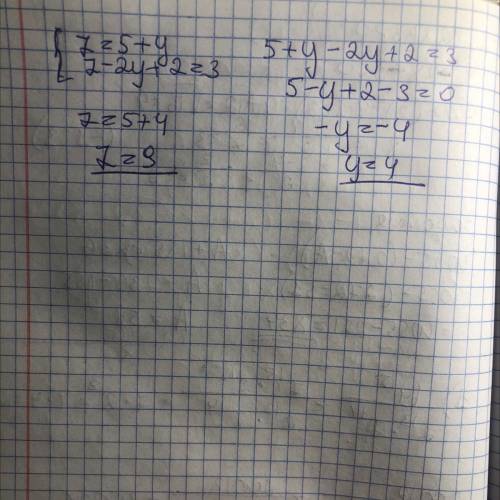 { 7 = 5 + y
7 - 2y + 2 = 3
7 = 5 + 4
7 = 9
5 + y - 2y + 2 = 3
5 - y + 2 - 3 = 0
- y = - 4
y = 4